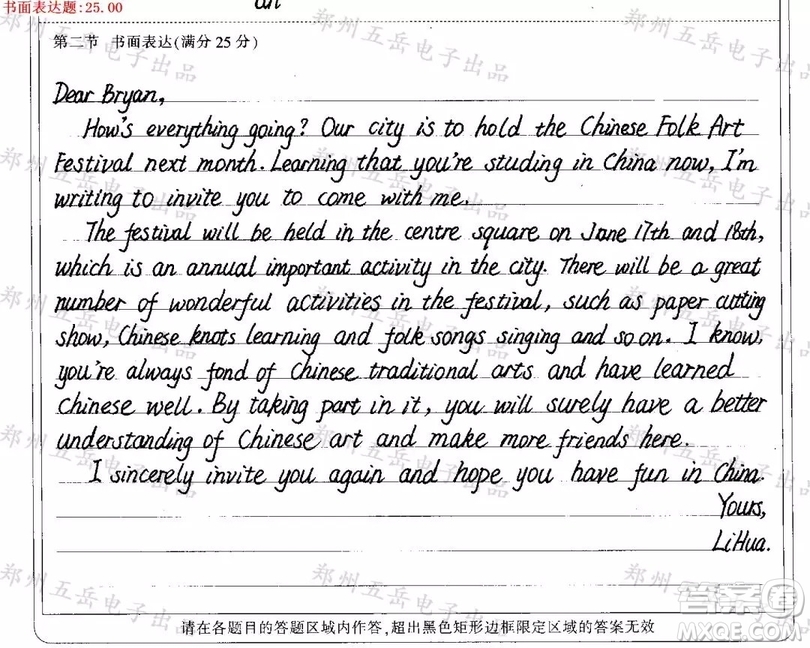 书面表达题:25.00
第二节 书面表达(满分25分)
Dear Bryan,
How's everything going? Our city is to hold the Chinese Folk Art
Festival next month. Learning that you're studing in China now, I'm
writing to invite you to come with me.
The festival will be held in the centre square on June 17th and 18th,
which is an annual important activity in the city. There will be a great
number of wonderful activities in the festival, such as paper cutting
show, Chinese knots learning and folk songs singing and so on. I know,
you're always fond of Chinese traditional arts and have learned
Chinese well. By taking part in it, you will surely have a better
understanding of Chinese art and make more friends here.
I sincerely invite you again and hope you have fun in China.
Yours,
LiHua.
请在各题目的答题区域内作答,超出黑色矩形边框限定区域的答案无效
郑州五岳电子出品
答案圈
MXQE.COM